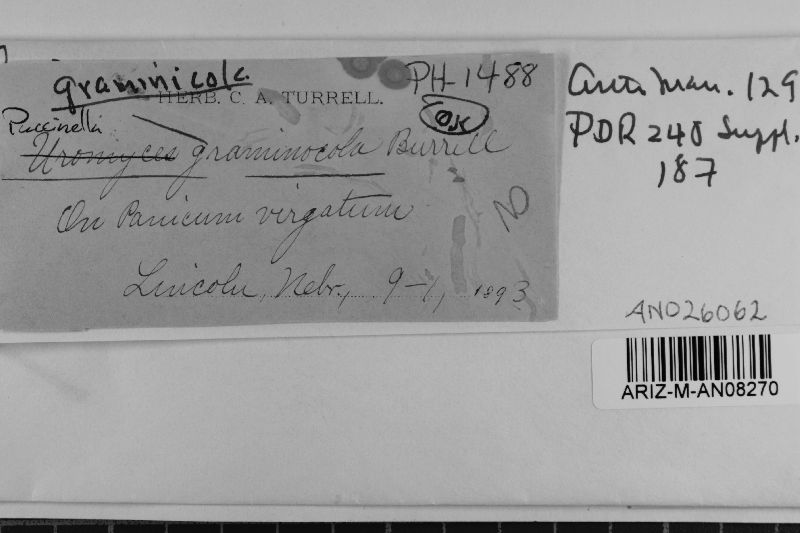 graminicola
PH-1488
HERB. C. A. TURRELL.
OK
Puccinella
Uromyces graminocola Burrill
On Panicum virgatum
NO
Lincoln, Nebr., 9-1, 1893
Man. 129
PDR 248 Suppl.
187
AN026062
ARIZ-M-AN08270